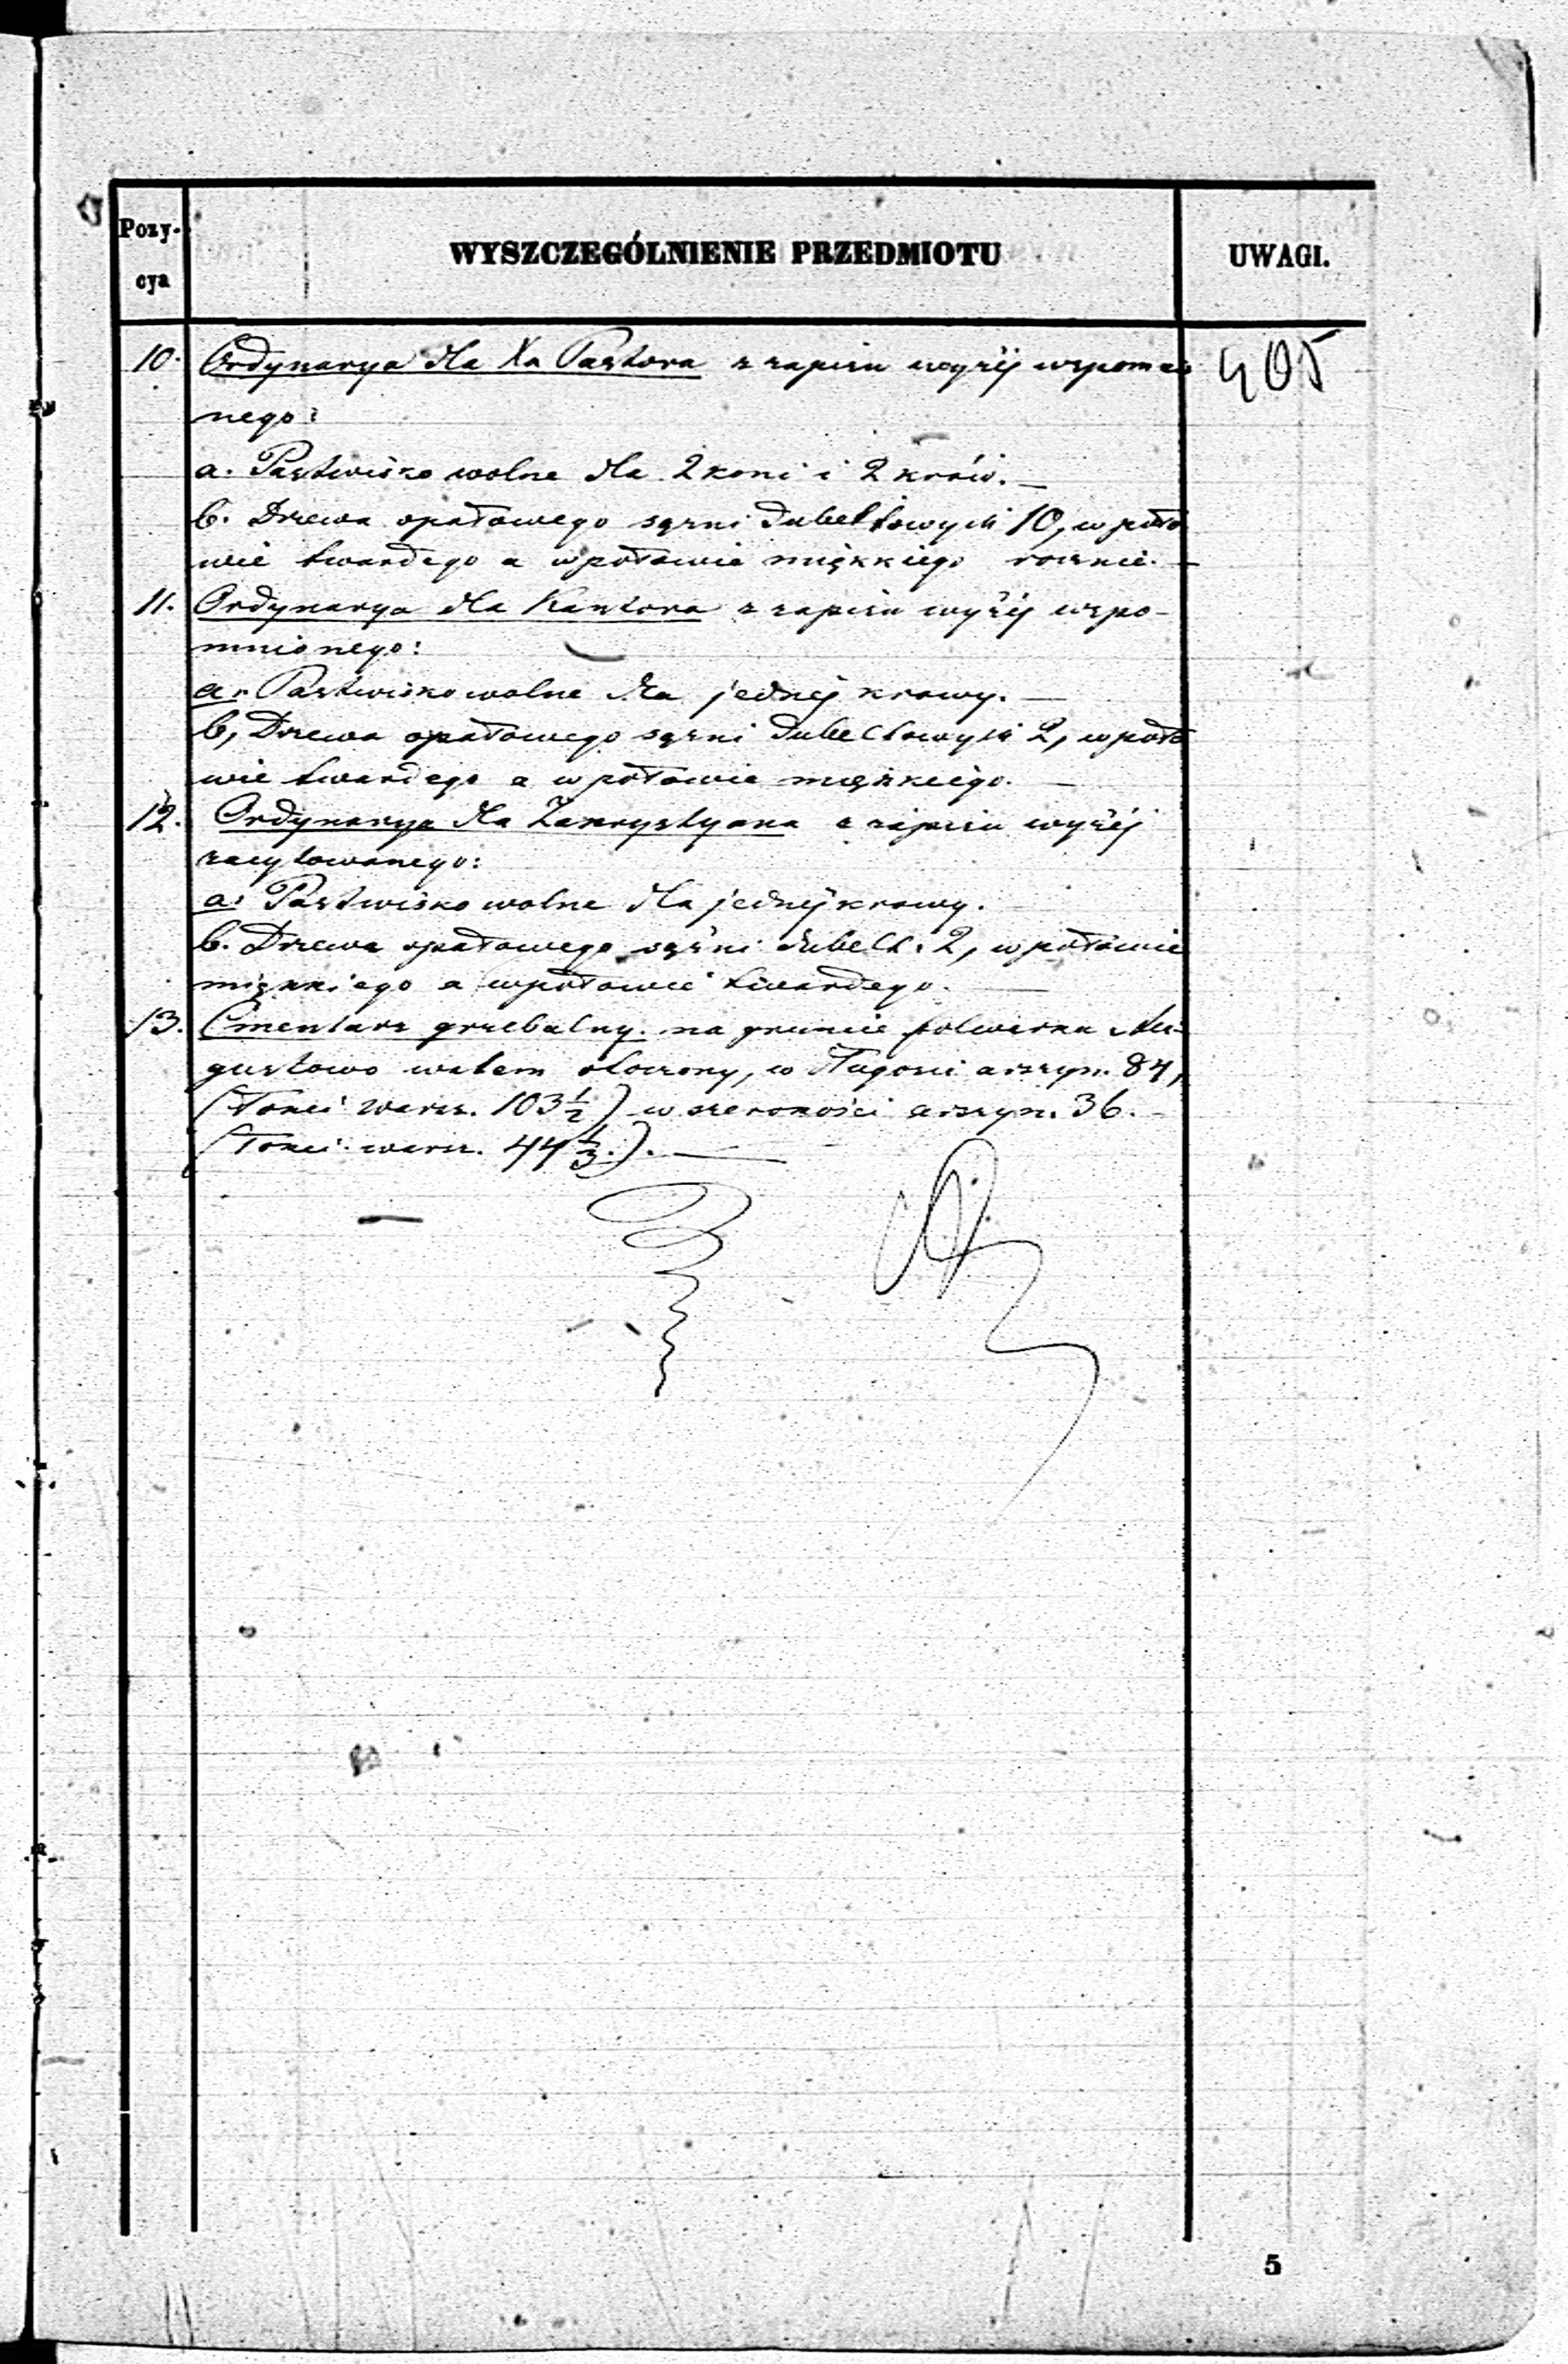 Pozy-
cya
WYSZCZEGÓLNIENIE PRZEDMIOTU
UWAGI.
405
10. Ordynarya dla Xa Pastora z zapisu wyżéj wspomnio
nego:
a. Pastwisko wolne dla 2 koni i 2 krów. —
b. Drzewa opałowego sążni dubeltowych 10, w poło
wie twardego a w połowie miękkiego rocznie. —
11. Ordynarya dla Kantora z zapisu wyżéj wspo-
mnionego:
a. Pastwisko wolne dla jednéj krowy. —
b, Drzewa opałowego sążni dubeltowych 2, w poło
wie twardego a w połowie miękkiego. —
12. Ordynarya dla Zakrystyana z zapisu wyżéj
zacytowanego:
a. Pastwisko wolne dla jednéj krowy.
b. Drzewa opałowego sążni dubelt. 2, w połowie
miękkiego a w połowie twardego. —
13. Cmentarz grzebalny na gruncie folwarku Au-
gustowo wałem otoczony, w długości arszyn. 84,
(łokci warsz. 103 1/2) w szerokości arszyn. 36. —
(łokci warsz. 44 1/3.). —
5